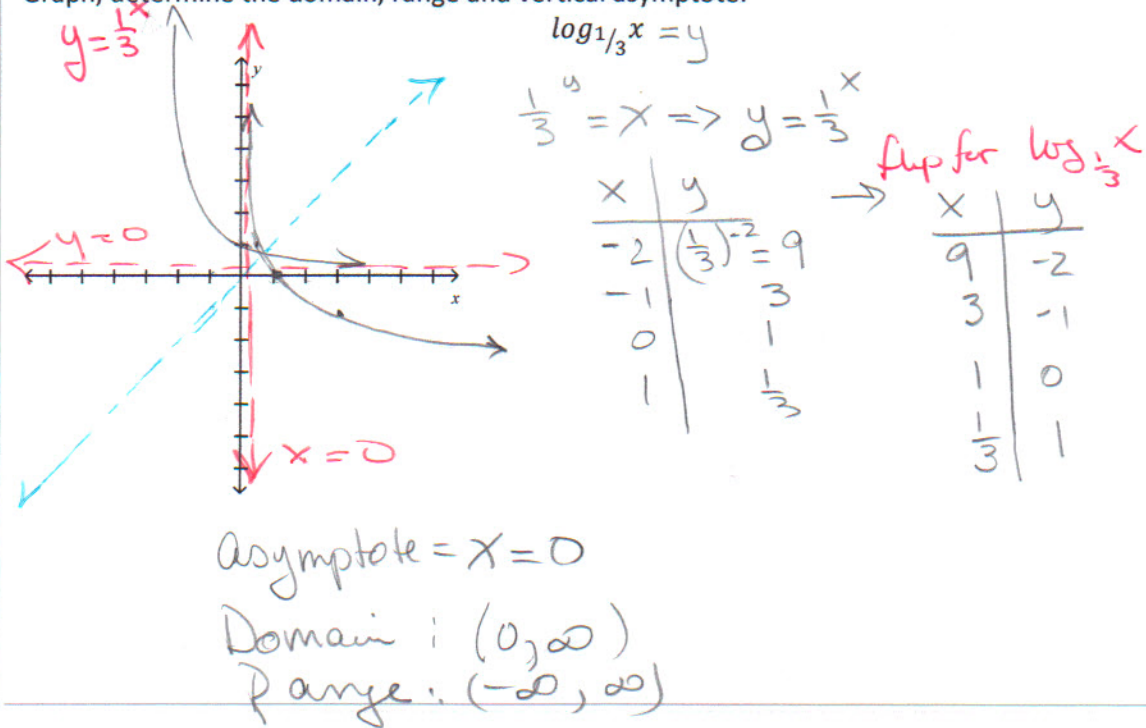 Graph, determine the domain, range and vertical asymptote.
y = 1/3^x
log1/3 x = y
y
1/3^y = x => y = 1/3^x
flip for log 1/3 x
x | y → x | y
-2 | (1/3)^-2 = 9
9 | -2
-1 | 3
3 | -1
0 | 1
1 | 0
1 | 1/3
1/3 | 1
y = 0
x
x = 0
asymptote = x = 0
Domain : (0, ∞)
Range : (-∞, ∞)